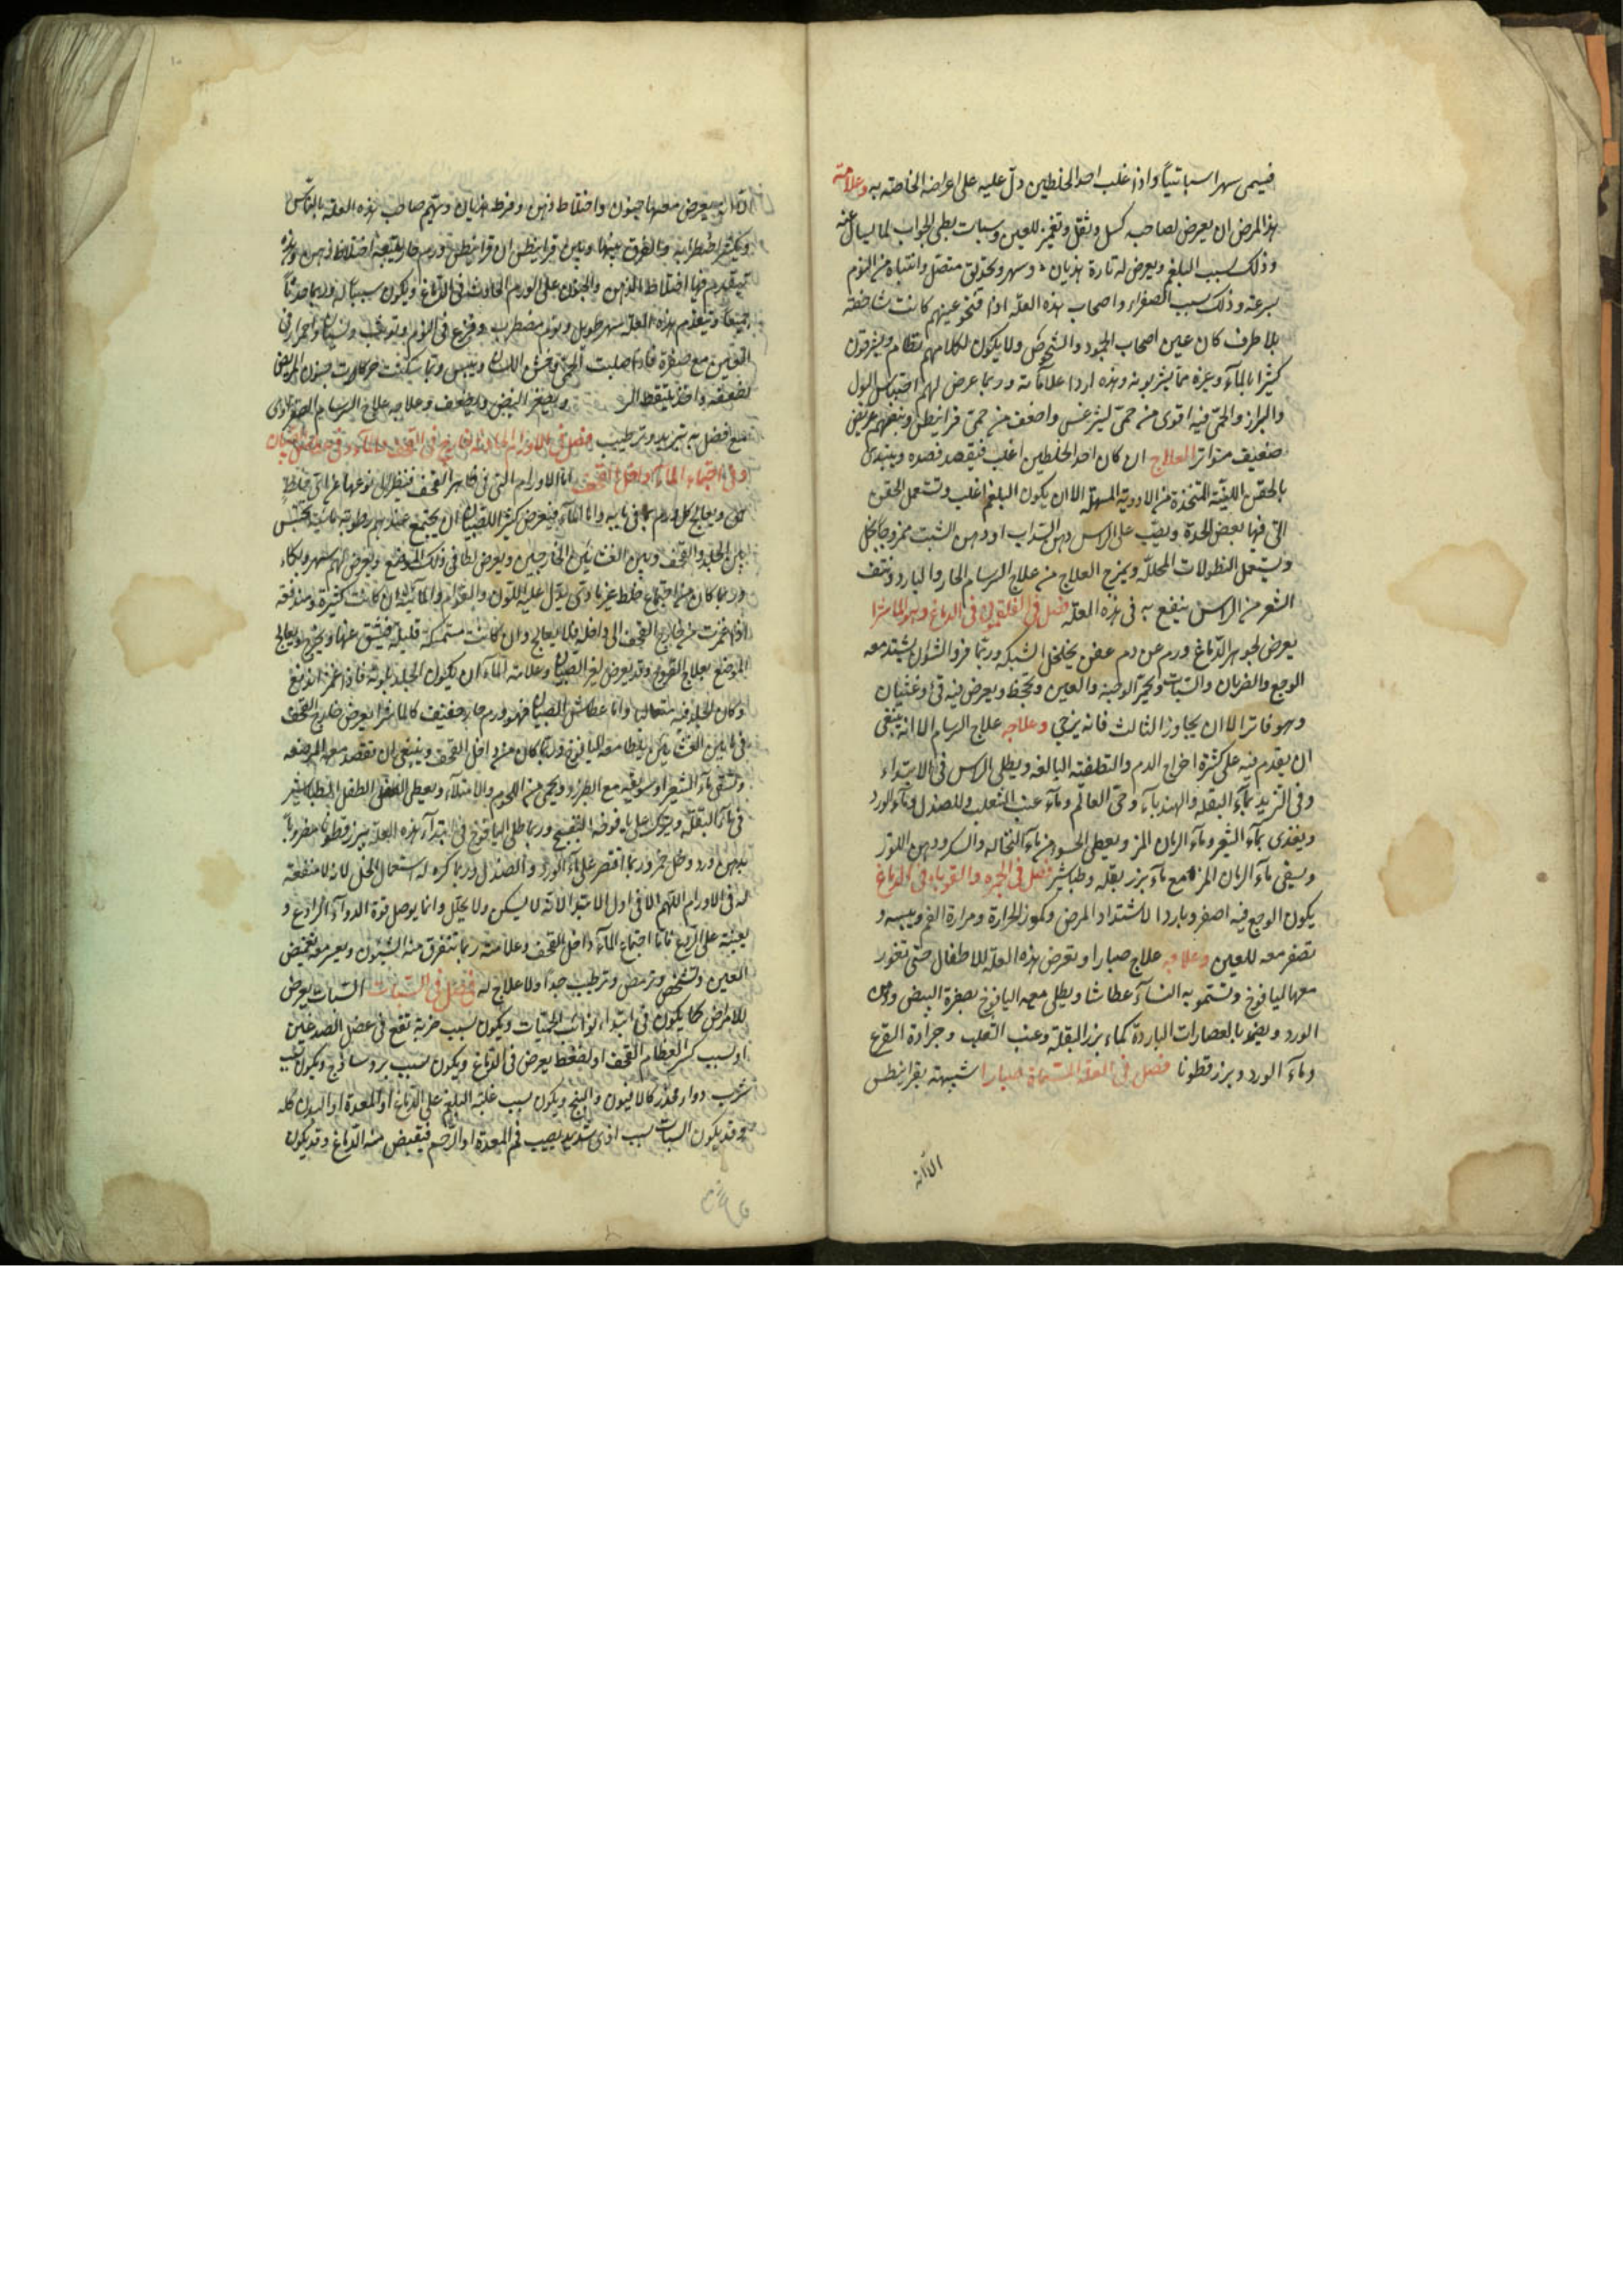 فيسمى سهرا سباتيا واذا غلب احد الخلطين دل عليه على اعراضه الخاصته به وعلامته
هذا المرض ان يعرض لصاحبه كسل وثقل وتغميز للعين وسبات بطى الجواب لما يسال عنه
وذلك بسبب البلغم ويعرض له تارة هذيان وسهر وتحديق متصل وانتباه من النوم
بسرعته وذلك بسبب الصفراء واصحاب هذه العلة اذا فتحوا عينهم كانت شاخصة
بلا طرف كان عين اصحاب الجمود والشخوص ولا يكون لكلامهم نظام ويشرقون
كثيرا بالمآء وغيره مما يشربونه وهذه اردا علاماته وربما عرض لهم احتباس البول
والبراز والحمى فيه اقوى من حمى ليثرغس واضعف من حمى قرانيطس ونبضهم عريض
ضعيف متواتر العلاج ان كان احد الخلطين اغلب فيقصد قصده ويبتدئ
بالحقن اللينة المتخذة من الادوية المسهلة الا ان يكون البلغم اغلب وتستعمل الحقن
التى فيها بعض الحدة ويصب على الراس دهن السداب او دهن الشبت ممزوجا بخل
ويستعمل النطولات المحللة ويمزج العلاج من علاج السرسام الحار والبارد ونتف
الشعر من الراس ينفع به فى هذه العلة فصل فى الفلغمونى فى الدماغ وهو الماشرا
يعرض لجوهر الدماغ ورم عن دم عفن يخلخل الشبكه وربما فرز الشؤن يشتد معه
الوجع والضربان والسبات ويحمر الوجنة والعين وتجحظ ويعرض فيه قئ وغثيان
وهو فاتر الا ان يجاوز الثالث فانه يرجى وعلاجه علاج السرسام الا انه ينبغى
ان يقدم فيه على كثرة اخراج الدم والتطفئة البالغه ويطلى الراس فى الابتداء
وفى التزيد بمآء البقلة والهندبآء وحى العالم ومآء عنب الثعلب والصندل ومآء الورد
ويغذى بمآء الشعير ومآء الرمان المز ويعطى الحسو من مآء النخاله والسكر ودهن اللوز
ويسقى مآء الرمان المز مع مآء بزر بقله وطباشير فصل فى الجمره والقوباء فى الدماغ
يكون الوجع فيه اصفر وباردا لاشتداد المرض وكمون الحرارة ومرارة الفم ويبسه و
تصفر معه للعين وعلاجه علاج صبارا وتعرض هذه العلة للاطفال حتى تغور
معها اليافوخ وتسموه النسآء عطاشا ويطلى معه اليافوخ بصفرة البيض ودهن
الورد ويضمد بالعصارات الباردة كماء بزر البقلة وعنب الثعلب وجرادة القرع
ومآء الورد وبزر قطونا فصل فى العلة المسماة صبارا شبيهة بقرانيطس
الا انه
يعرض معها جنون واختلاط ذهن وفرط هذيان ويتهم صاحب هذه العلة بالناس
ويكثر اضطرابه والفرق بينها وبين قرانيطس ان قرانيطس ورم حار يتبعه اختلاط ذهن وهذه
يتقدم فيها اختلاط الذهن والجنون على الورم الحادث فى الدماغ ويكون سببا له وربما حدثا
جميعا ويتقدم هذه العلة سهر طويل ونوم مضطرب وفزع فى النوم وتوثب ونسيان واحمرار فى
العينين مع صفرة فاذا اصلبت الحمى وخش اللسان ويبس وربما سكنت حركات جنون المريض
لضعفه واخذ يلتقط ويصغر النبض ويضعف وعلاجه علاج السرسام الصفراوى
مع افضل به تبريد وترطيب فصل فى الاورام الحادثة الخارج فى القحف
وفى اجتماع المآء داخل القحف اما الاورام التى فى ظاهر القحف فينظر الى نوعها عن اى خلط
بين الجلد والقحف وبين الغشائين الخارجين ويعرض لطا فى ذلك الموضع ويعرض لهم سهر وبكاء
وربما كان من اجتماع خلط غير مائى يدل عليه اللون والقوام والمآئية ان كانت كثيرة ومندفعة
اذا غمزت من خارج القحف الى داخله فلا يعالج وان كانت مستمسكة قليلة فيشق عنها ويخرج ويعالج
الموضع بعلاج القروح وقد يعرض لغير الصبيان وعلامة المآء ان يكون الجلد بلونه فاذا غمز اندفع
وكان الجلد فيه متعاليا واما عطاش الصبيان فهو ورم حار خفيف كالماشرا يعرض خارج القحف
وتسقى مآء الشعير او سويقه مع الطبرزد ويحمى من اللحوم والامتلاء ويعطى الطفل الطباشير
بدهن ورد وخل خمر وربما اقتصر على مآء الورد والصندل وربما كره له استعمال الخل لانه لا منفعة
له فى الاورام اللهم الا فى اول الابتدا لانه لا يسكن ولا يحلل وانما يوصل قوة الدوآء الرادع و
يعينه على الردع فاما اجتماع المآء داخل القحف وعلامته ربما تتفرق منه الشئون ويعسر معه تغميض
العين وتشخص وترمص وترطب جدا ولا علاج له فصل فى السبات السبات يعرض
للامراض كما يكون فى ابتداء نوائب الحميات ويكون بسبب ضربة تقع فى عضل الصدغين
او بسبب كسر العظام القحف او لضغط يعرض فى الدماغ ويكون بسبب برد ساذج ويكون بسبب
شرب دواء مخدر كالافيون والبنج ويكون بسبب غلبة البلغم على الدماغ او المعدة او البدن كله
وقد يكون السبات بسبب اذى شديد يصيب فم المعدة او الرحم فيقبض منه الدماغ وقد يكون